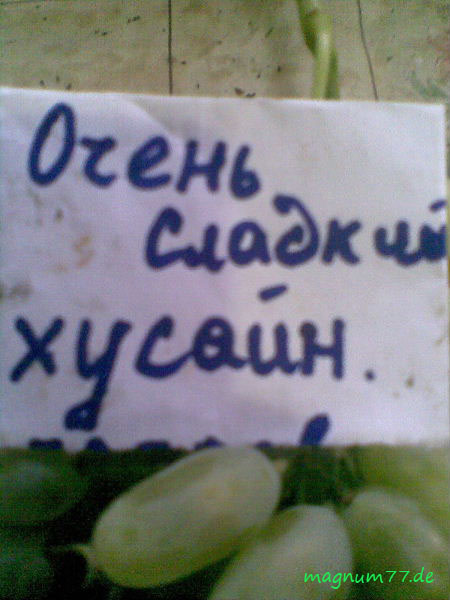 Очень
сладкий
хусайн.
magnum77.de